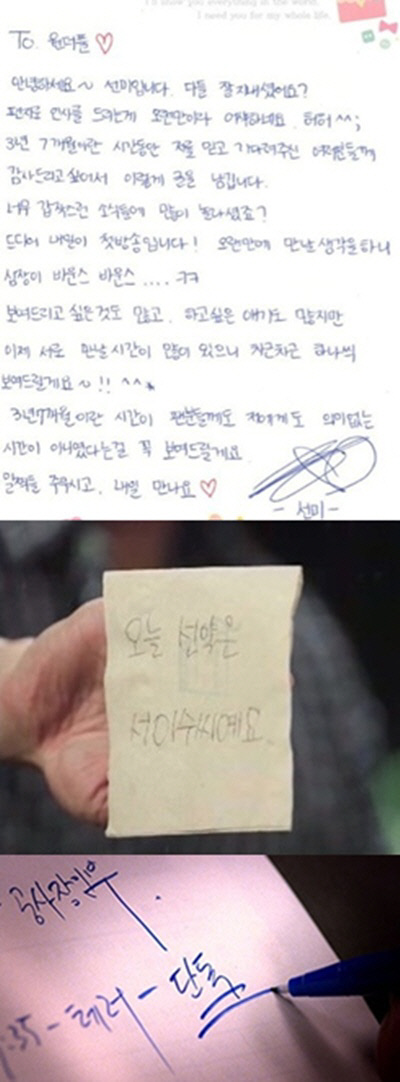 I'll show you everything in the world.
I need you for my whole life.
To. 원더풀 ♡
안녕하세요~ 선미입니다. 다들 잘 지내셨어요?
편지로 인사를 드리는게 오랜만이라 어색하네요. 허허^^;
3년 7개월이란 시간동안 저를 믿고 기다려주신 여러분들께
감사드리고 싶어서 이렇게 글을 남깁니다.
너무 갑작스런 소식들에 많이 놀라셨죠?
드디어 내일이 첫방송입니다! 오랜만에 만날 생각을 하니
심장이 바운스 바운스..... ㅋㅋ
보여드리고 싶은것도 많고, 하고싶은 얘기도 많지만
이제 서로 만날 시간이 많이 있으니 차근차근 하나씩
보여드릴게요~!! ^^
3년7개월이란 시간이 팬분들께도 저에게도 의미없는
시간이 아니였다는걸 꼭 보여드릴게요.
일찍들 주무시고, 내일 만나요 ♡
- 선미 -
오늘 선약은
서이수씨예요
공사장인부
:35 - 테러 - 단독